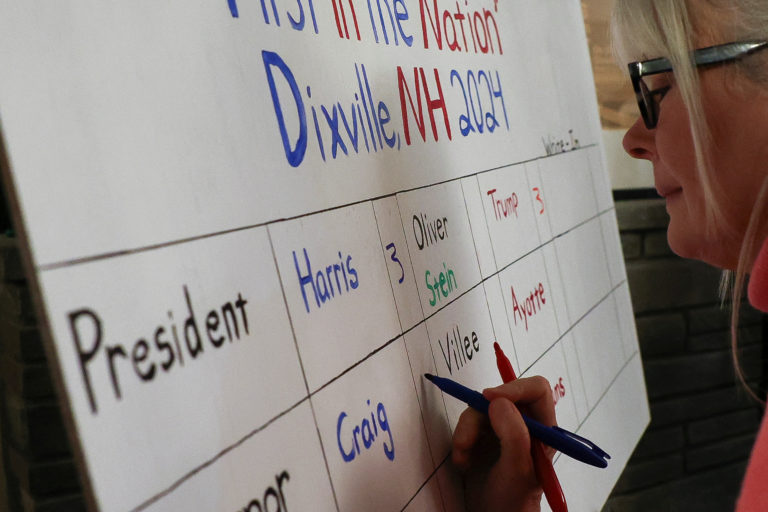 First in the Nation"
Dixville, NH 2024
Write-In
President Harris 3 Oliver Trump 3
Stein
Craig Villee Ayotte